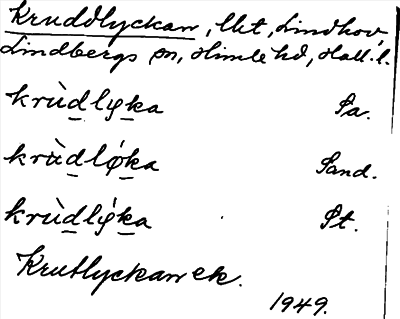 Kruddlyckan, lht, Lindhov,
Lindbergs sn, Himle hd, Hall. l.
krùdlyka Pa.
krùdlýka Sand.
krùdlýka Pt.
Krutlyckan ek.
1949.